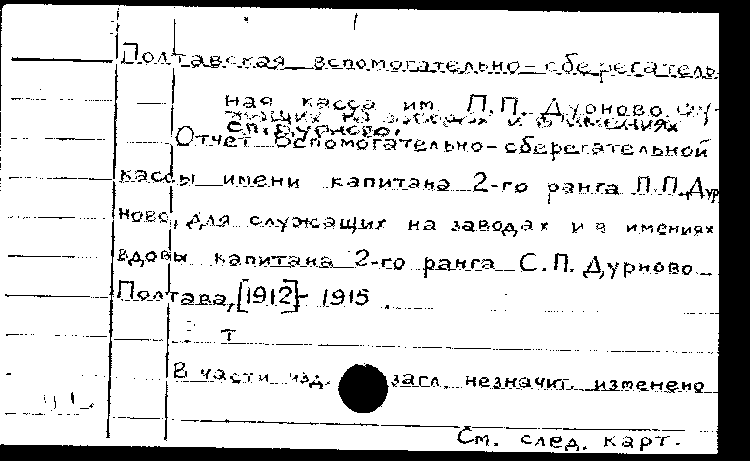 Полтавская вспомогательно-сберегатель
ная касса им. П.П. Дурново слу-
жащих на заводах и в имениях
С.П. Дурново.
Отчет Вспомогательно-сберегательной
кассы имени капитана 2-го ранга П.П. Дур
ново, для служащих на заводах и в имениях
вдовы капитана 2-го ранга С.П. Дурново
Полтава, [1912]- 1915.
т
В части изд. загл. незначит. изменено
См. след. карт.